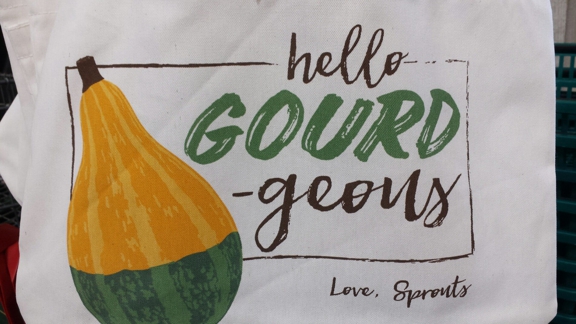 hello
GOURD
-geous
Love, Sprouts